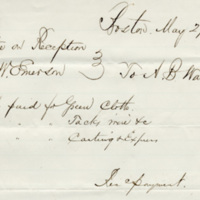 Boston, May 2
on Reception
W. Emerson To A. B. Wa
paid for Green Cloth
" " Tacks
" " Carting & Express
Rec Payment.